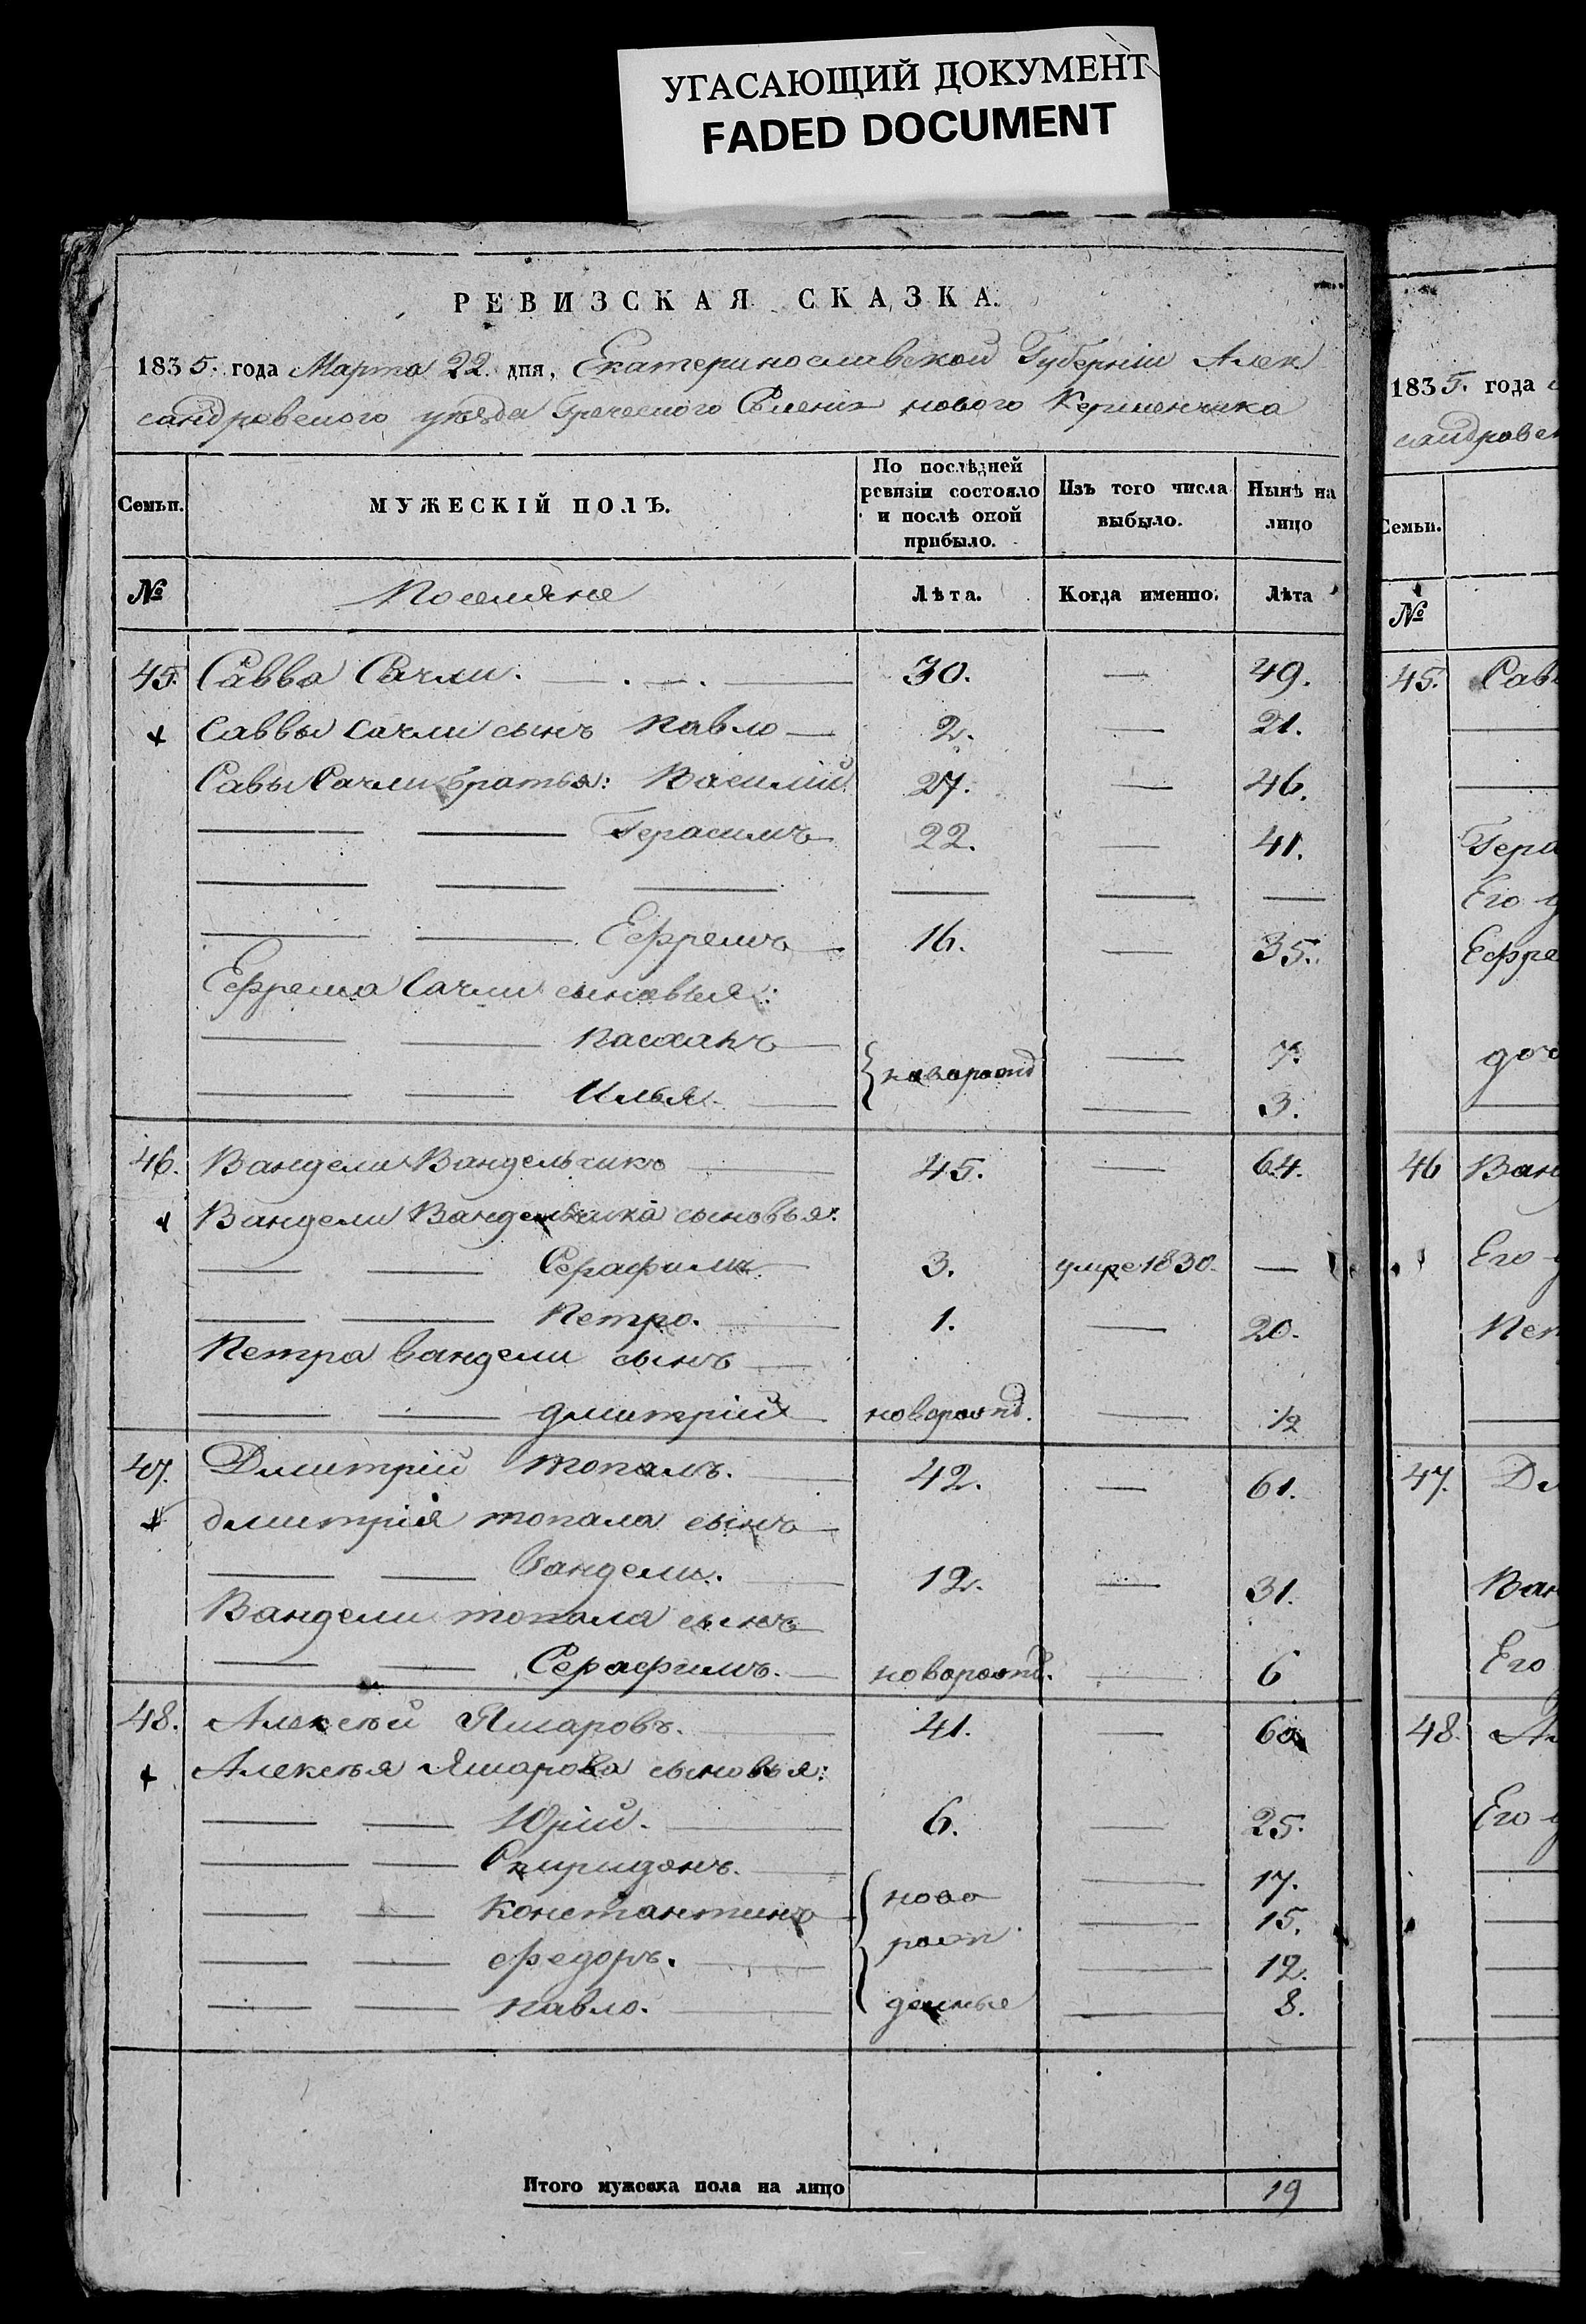 УГАСАЮЩИЙ ДОКУМЕНТ
FADED DOCUMENT
РЕВИЗСКАЯ СКАЗКА.
1835. года Марта 22 дня, Екатеринославской Губерніи Алек
сандровскаго уѣзда Греческого Селенія нового Керменчика
Семьи. МУЖЕСКІЙ ПОЛЪ. По послѣдней ревизіи состояло и послѣ оной прибыло. Изъ того числа выбыло. Нынѣ на лицо
№ Поселяне Лѣта. Когда именно. Лѣта
45. Савва Сачли. 30. — 49.
Саввы Сачли сынъ Павло — 2. — 21.
Савы Сачли братья: Василий 27. — 46.
Герасимъ 22. — 41.
Ефремъ 16. — 35.
Ефрема Сачли сыновья:
Пасханъ — 7.
{ новорожд
Илья — 3.
46. Вандели Вандельчикъ 45. — 64.
Вандели Вандельчика сыновья:
Серафимъ 3. умре 1830. —
Петро. 1. — 20.
Петра Вандели сынъ
Дмитрій новорожд. — 1/2
47. Дмитрій Топалъ. 42. — 61.
Дмитрія Топала сынъ
Вандели. 12. — 31.
Вандели Топала сынъ
Серафимъ. новорожд. — 6
48. Алексѣй Яшаровъ. 41. — 60
Алексѣя Яшарова сыновья:
Юрій. 6. — 25.
Спиридонъ. — 17.
Константинъ { ново — 15.
Федоръ. рож — 12.
Павло. денные — 8.
Итого мужеска пола на лицо 19
1835. года
сандровск
Семьи.
№
45. Савв
Гера
Его
Ефре
доч
46 Ван
Его
Пет
47. Дм
Ван
Его
48. Ал
Его